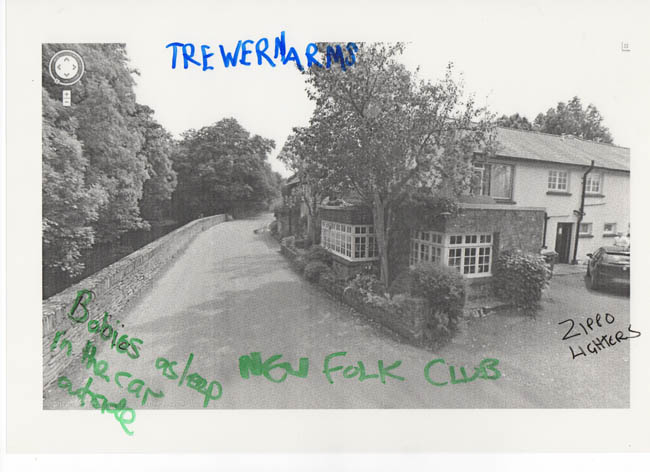 TREWERN ARMS
Babies asleep
in the car
outside
NEW FOLK CLUB
ZIPPO
LIGHTERS